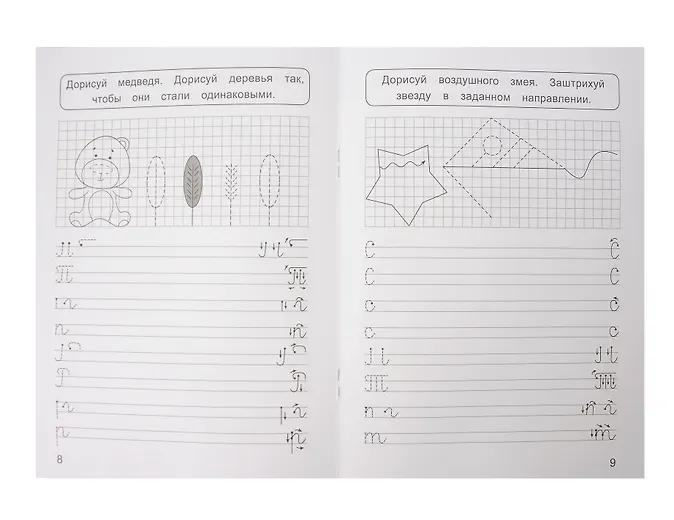 Дорисуй медведя. Дорисуй деревья так,
чтобы они стали одинаковыми.
П
П
п
п
Р
Р
р
р
8
Дорисуй воздушного змея. Заштрихуй
звезду в заданном направлении.
С С
С С
с с
с с
Т
Т
т
т
9